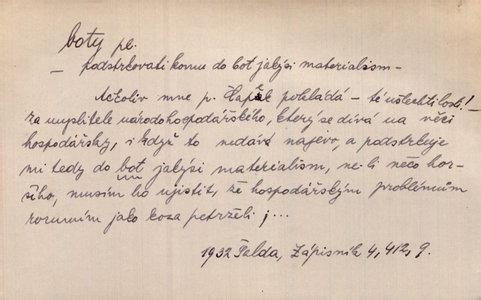 boty pl.
— podstrkovati komu do bot jakýsi materialism —
Ačkoliv mne p. Hapák pokládá – té ušlechtilosti! –
za myslitele národohospodářského, který se dívá na věci
hospodářsky, i když to nedává najevo, a podstrkuje
mi tedy do bot jakýsi materialism, ne-li něco hor-
šího, musím ho ujistit, že hospodářským problémům
rozumím jako koza petrželi j...
1932 Falda, Zápisník 4, 412, 9.